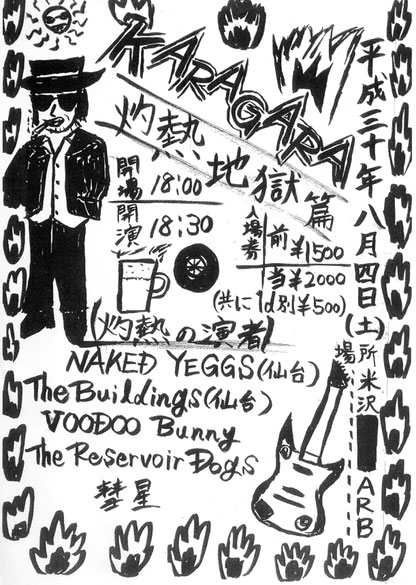 KARAGARA
灼熱地獄篇
平成三十年八月四日(土)
開場 18:00
開演 18:30
入場券
前 ¥1500
当 ¥2000
(共に1d別¥500)
場所 米沢 ARB
(灼熱の演者)
NAKED YEGGS(仙台)
The Buildings(仙台)
VOODOO Bunny
The Reservoir Dogs
彗星